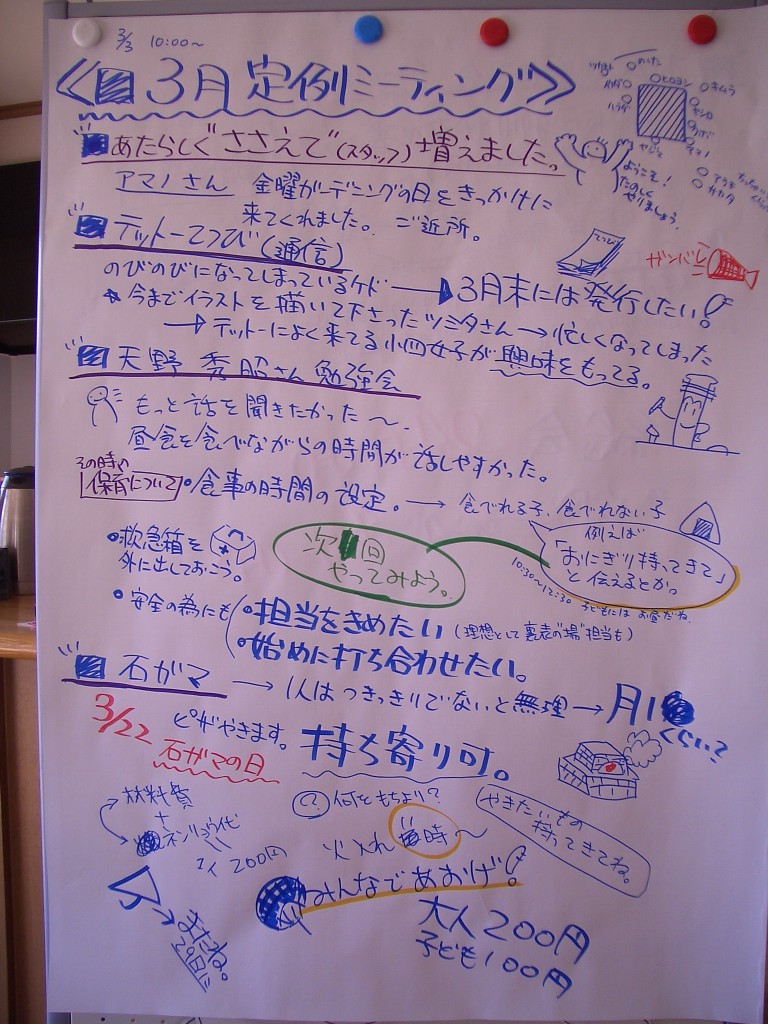 3/3 10:00〜
3月定例ミーティング
キムラ
ようこそ!
たのしく
やりましょう。
あたらしくささえて(スタッフ)増えました。
アマノさん 金曜ガーデニングの日をきっかけに
来てくれました。 ご近所。
テットーてつび(通信)
てつび
ガンバレ
のびのびになってしまっているケド → 3月末には発行したい!
今までイラストを描いて下さったツミタさん→忙しくなってしまった
→テットーによく来てる小四女子が興味をもってる。
天野秀昭さん勉強会
もっと話を聞きたかった〜。
昼食を食べながらの時間が話しやすかった。
その時の
保育について
・食事の時間の設定。→ 食べれる子、食べれない子
例えば
「おにぎり持ってきて」
と伝えるとか。
10:30〜12:30 子どもにはお昼だね
次回
やってみよう。
・救急箱を
外に出しておこう。
・安全の為にも
・担当をきめたい(理想として裏表"場"担当も)
・始めに打ち合わせたい。
石ガマ → 1人はつきっきりでないと無理→月1
くらい?
3/22 ピザやきます。 持ち寄り可。
石ガマの日
材料費
+
ネンリョウ代
1人200円
? 何をもちより?
やきたいもの
持ってきてね。
火入れ 時〜
みんなであおげ!
大人200円
子ども100円
またね。
29日に